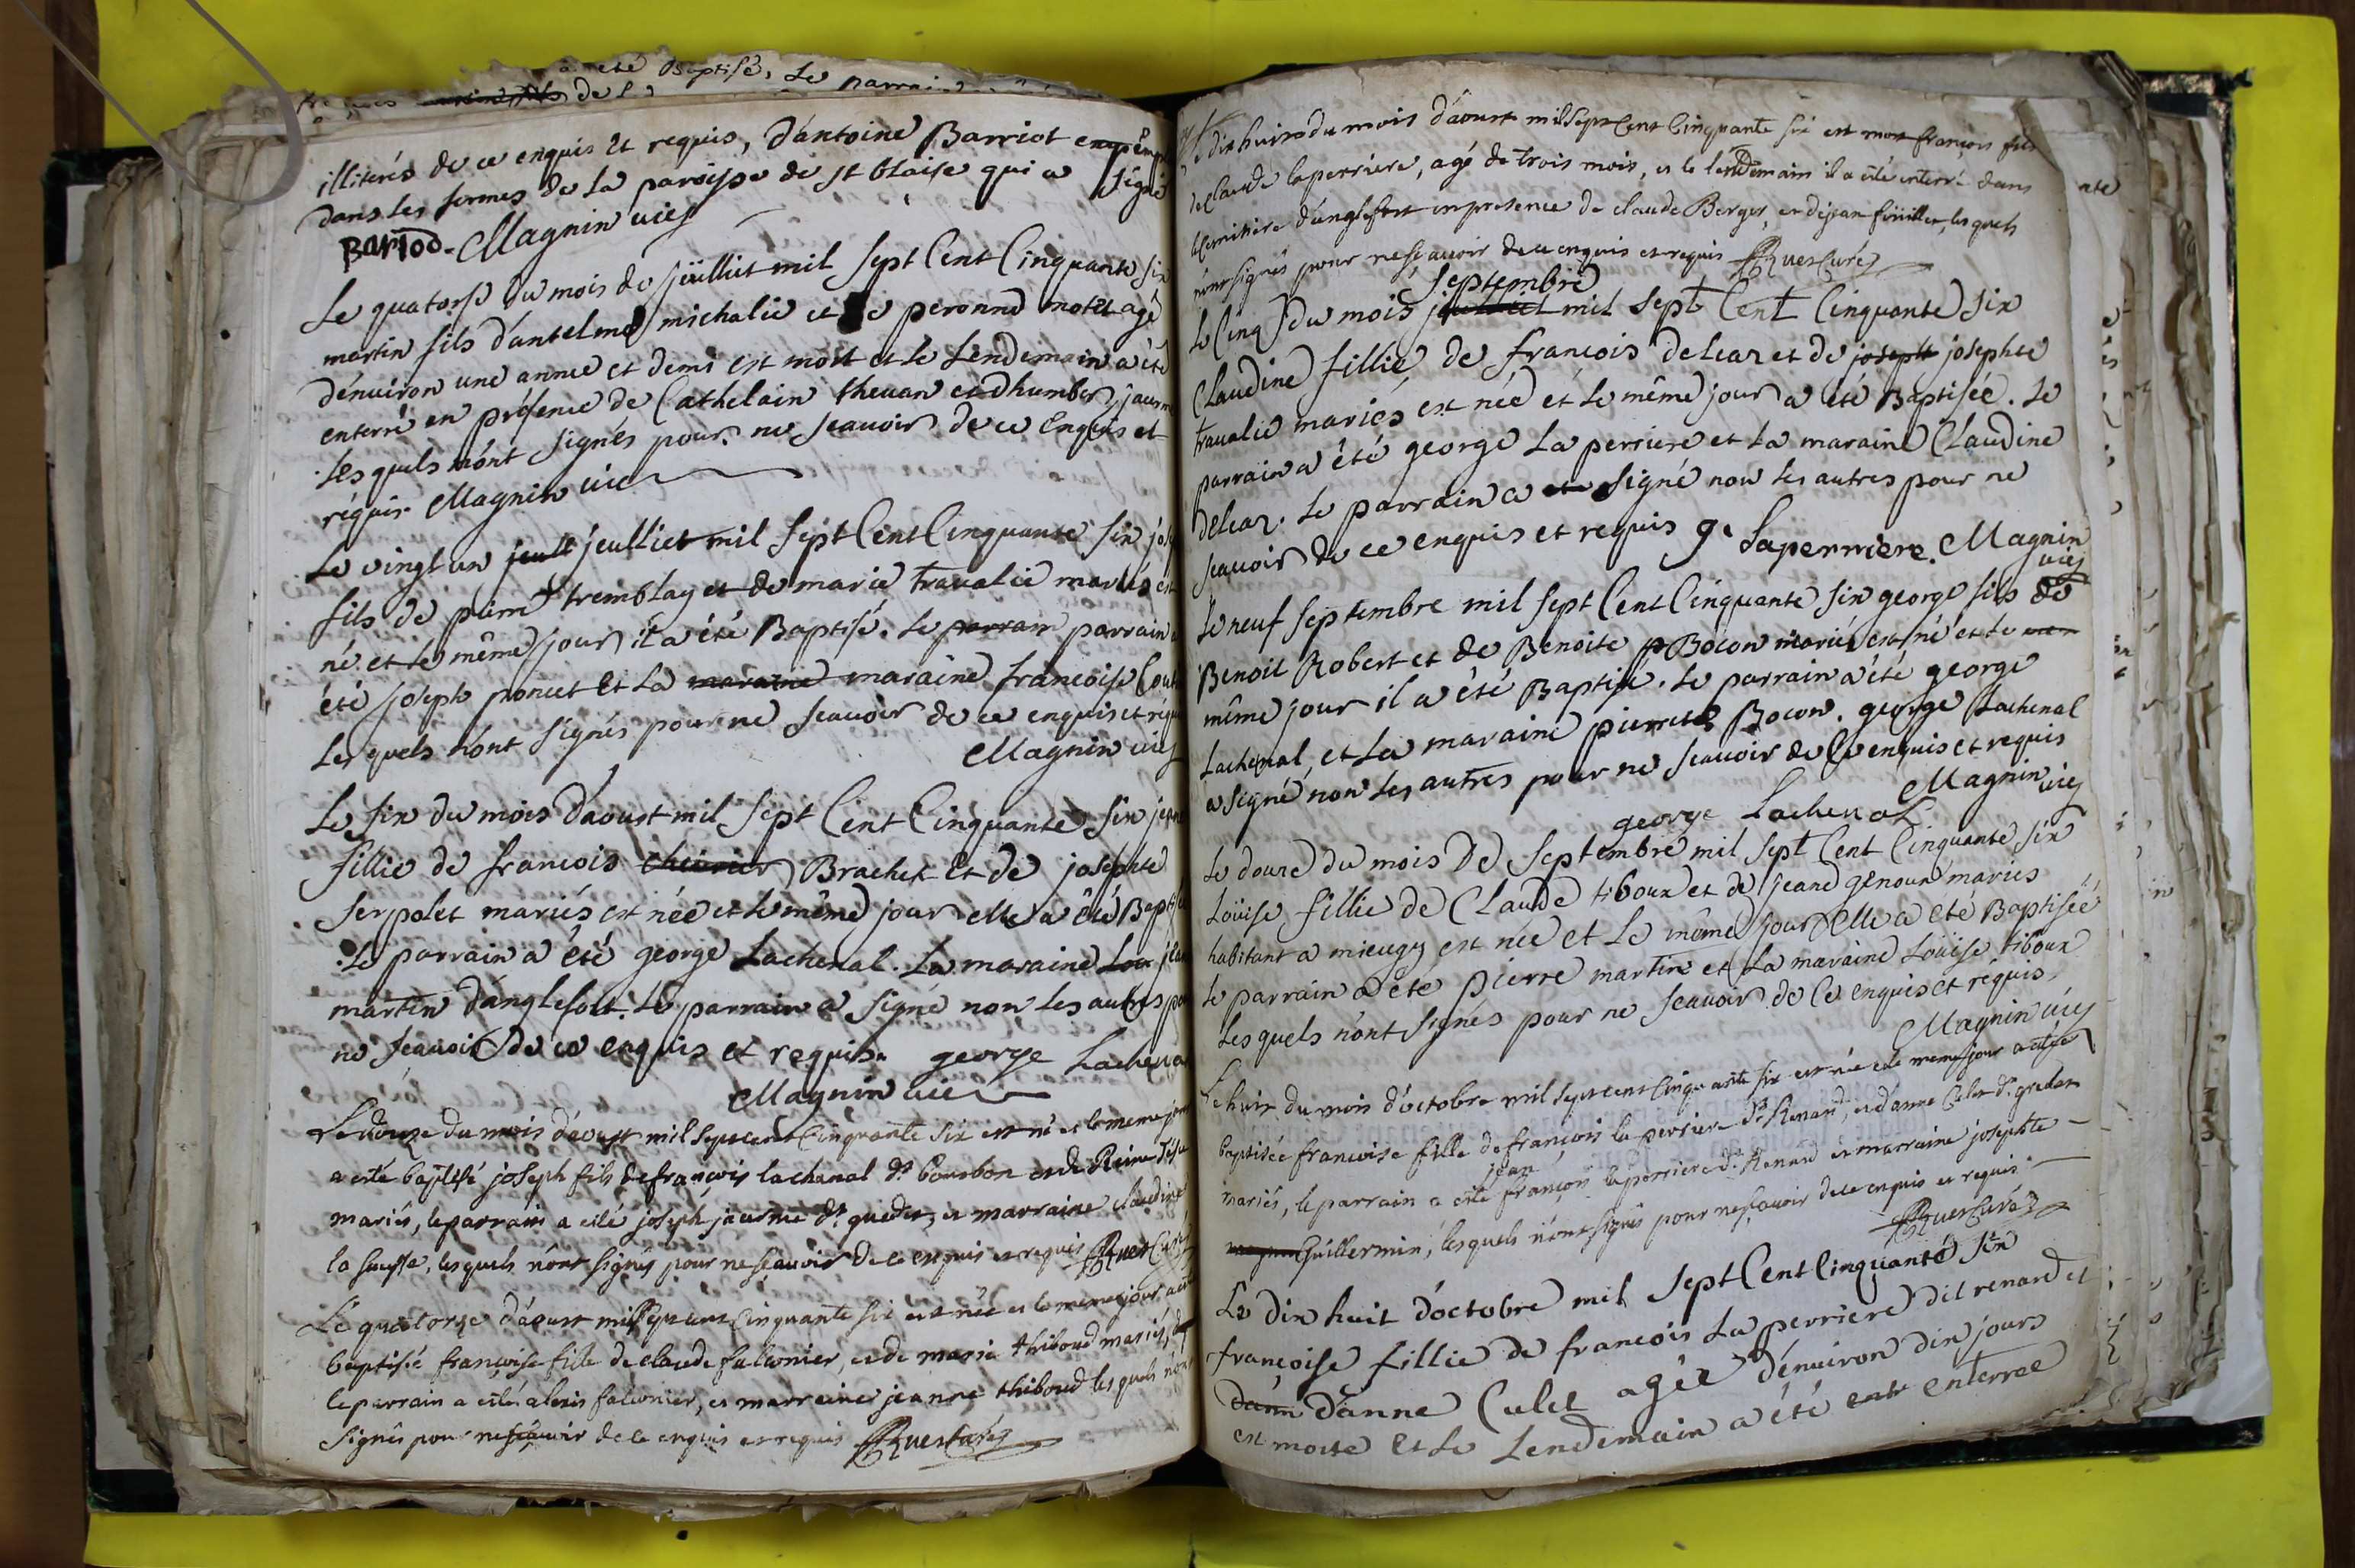 a eté Baptisé, Le parrain
illiterés de ce enquis et requis, d'antoine Barriot
dans les formes de La paroisse de st blaise qui a signé
Barriod. Magnin vic
Le quatorse du mois de jüilliet mil sept Cent Cinquante six
martin fils d'antelme michalie et de peronne motet agé
d'enuiron une année et demi est mort et le Lendemain a été
enterré en présence de Cathelain theuan et d'humber
Lesquels n'ont signés pour ne scauoir de ce Enquis et
réquis Magnin vic
Le vingt un jeuilt jeulliet mil sept Cent Cinquante six
fils de pierre tremblay et de marie traualie mariés
né et le même jour il a été Baptisé. Le parrain parrain
été joseph poncet et La maraine maraine francoise
Les quels n'ont signés pour ne scauoir de ce enquis et
Magnin vic
Le six du mois d'aoust mil sept Cent Cinquante six
fillie de francois Brachet et de josephte
serpolet mariés est née et le même jour elle a été
Le parrain a été george Lachenal. La maraine
martin d'anglefort. Le parrain a signé non les autres
ne scauoir de ce enquis et requis. george Lachenal
Magnin vic
Le douze du mois d'aoust mil sept cent Cinquante six est né et le meme
a esté baptisé joseph fils de françois lachanal dt bourbon et de Reine
mariés, le parrain a esté joseph jacerme dt quedet, et marraine claudine
la suysse, les quels n'ont signés pour ne sçauoir de ce enquis et requis Ruer Curé
Le quatorze d'aoust mil sept cent Cinquante six est née et le meme jour
baptisée françoise fille de claude falconier, et de marie thiboud mariés,
le parrain a esté alexis falconier, et marraine jeanne thiboud les quels n'ont
signés pour ne sçauoir de ce enquis et requis Ruer Curé
Le dix huit du mois d'aoust mil sept Cent Cinquante six est mort françois fils
de claude laperriere, agé de trois mois, et le lendemain il a esté enterré dans
le cimitiere d'anglefort en presence de claude Berger, et de jean füillet, les quels
n'ont signés pour ne sçauoir de ce enquis et requis Ruer Curé
septembre
Le Cinq du mois mil sept Cent Cinquante six
Claudine fillie de francois delear et de joseph josephte
traualie mariés est née et le même jour a été Baptisée. Le
parrain a été george La perriere et La maraine Claudine
delear. Le parrain a signé non les autres pour ne
scauoir de ce enquis et requis g. Laperriere. Magnin
vic
Le neuf septembre mil sept Cent Cinquante six george fils de
Benoit Robert et de Benoite Bocon mariés est né et le
même jour il a été Baptisé. Le parrain a été george
Lachenal, et La maraine pierrete Bocon. george Lachenal
a signé non les autres pour ne scauoir de Ce enquis et requis
george Lachenal Magnin vic
Le douze du mois De septembre mil sept Cent Cinquante six
Loüise fillie de Claude tiboux et de jeane genoux mariés
habitant a mieugy est née et Le même jour Elle a eté Baptisée
Le parrain a été pierre martin et La maraine Loüise tiboux
Lesquels n'ont signés pour ne scauoir de Ce enquis et réquis.
Magnin vic
Le huit du mois d'octobre mil sept cent Cinquante six est née et le meme jour a esté
baptisée francoise fille de françois la perriere dt Renard, et d'anne Culet dt gredet
jean
mariés, le parrain a esté françois laperriere dt Renard et marraine josephte
Guillermin, lesquels n'ont signés pour ne sçauoir de ce enquis et requis
Ruer Curé
Le dix huit d'octobre mil sept Cent Cinquante six
françoise fillie de francois La perriere dit renard et
d'ann d'anne Culet agée d'enuiron dix jours
est morte Et Le Lendemain a été enterree